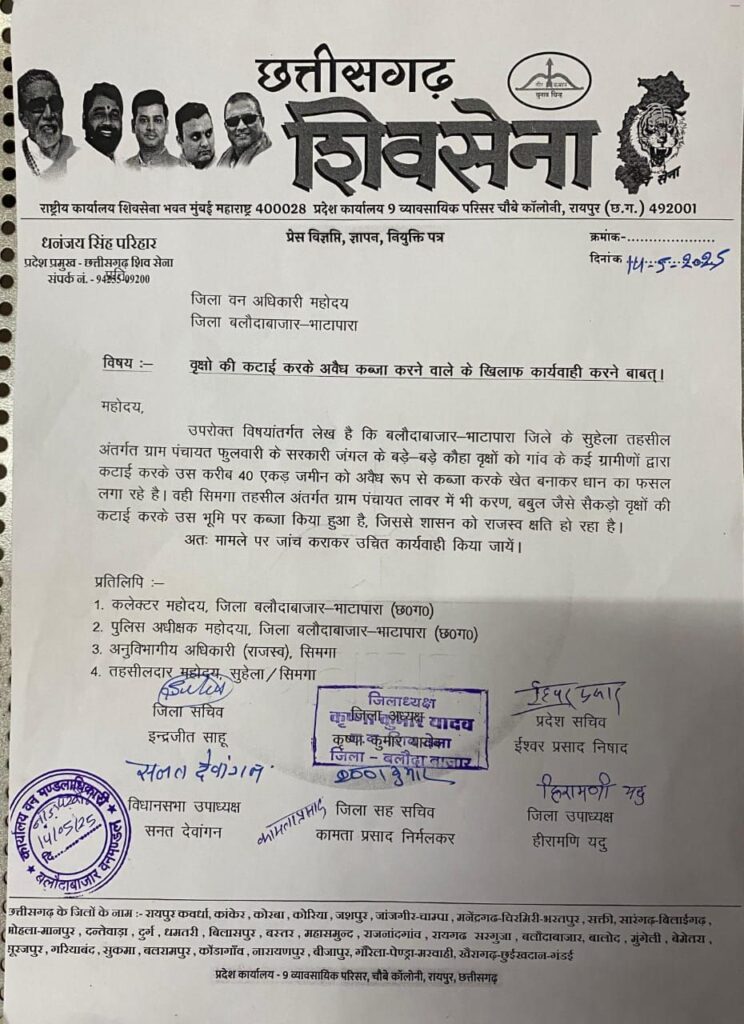 छत्तीसगढ़
शिवसेना
तीर कमान
चुनाव चिन्ह
सेना
राष्ट्रीय कार्यालय शिवसेना भवन मुंबई महाराष्ट्र 400028 प्रदेश कार्यालय 9 व्यावसायिक परिसर चौबे कॉलोनी, रायपुर (छ.ग.) 492001
धनंजय सिंह परिहार
प्रदेश प्रमुख - छत्तीसगढ़ शिव सेना
संपर्क नं. - 94255-09200
प्रति,
प्रेस विज्ञप्ति, ज्ञापन, नियुक्ति पत्र
क्रमांक-.....................
दिनांक 14-5-2025
जिला वन अधिकारी महोदय
जिला बलौदाबाजार–भाटापारा
विषय :– वृक्षो की कटाई करके अवैध कब्जा करने वाले के खिलाफ कार्यवाही करने बाबत्।
महोदय,
उपरोक्त विषयांतर्गत लेख है कि बलौदाबाजार–भाटापारा जिले के सुहेला तहसील
अंतर्गत ग्राम पंचायत फुलवारी के सरकारी जंगल के बड़े–बड़े कौहा वृक्षों को गांव के कई ग्रामीणों द्वारा
कटाई करके उस करीब 40 एकड़ जमीन को अवैध रूप से कब्जा करके खेत बनाकर धान का फसल
लगा रहे है। वही सिमगा तहसील अंतर्गत ग्राम पंचायत लावर में भी करण, बबुल जैसे सैकड़ो वृक्षों की
कटाई करके उस भूमि पर कब्जा किया हुआ है, जिससे शासन को राजस्व क्षति हो रहा है।
अतः मामले पर जांच कराकर उचित कार्यवाही किया जायें।
प्रतिलिपि :–
1. कलेक्टर महोदय, जिला बलौदाबाजार–भाटापारा (छ0ग0)
2. पुलिस अधीक्षक महोदया, जिला बलौदाबाजार–भाटापारा (छ0ग0)
3. अनुविभागीय अधिकारी (राजस्व), सिमगा
4. तहसीलदार महोदय, सुहेला/सिमगा
जिला सचिव
इन्द्रजीत साहू
जिलाध्यक्ष
कृष्णा कुमार यादव
जिला - बलौदा बाजार
जिला अध्यक्ष
कृष्णा कुमार यादव
प्रदेश सचिव
ईश्वर प्रसाद निषाद
सनत देवांगन
विधानसभा उपाध्यक्ष
सनत देवांगन
कामता प्रसाद
जिला सह सचिव
कामता प्रसाद निर्मलकर
हिरामणी यदु
जिला उपाध्यक्ष
हीरामणि यदु
कार्यालय वन मण्डलाधिकारी
बलौदाबाजार वनमण्डल
दि. 14/05/25
छत्तीसगढ़ के जिलों के नाम :- रायपुर कवर्धा, कांकेर, कोरबा, कोरिया, जशपुर, जांजगीर-चाम्पा, मनेंद्रगढ-चिरमिरी-भरतपुर, सक्ती, सारंगढ-बिलाईगढ़,
मोहला-मानपुर, दन्तेवाड़ा, दुर्ग, धमतरी, बिलासपुर, बस्तर, महासमुन्द, राजनांदगांव, रायगढ सरगुजा, बलौदाबाजार, बालोद, मुंगेली, बेमेतरा,
सूरजपुर, गरियाबंद, सुकमा, बलरामपुर, कोंडागाँव, नारायणपुर, बीजापुर, गौरेला-पेण्ड्रा-मरवाही, खैरागढ़-छुईखदान-गंडई
प्रदेश कार्यालय - 9 व्यावसायिक परिसर, चौबे कॉलोनी, रायपुर, छत्तीसगढ़